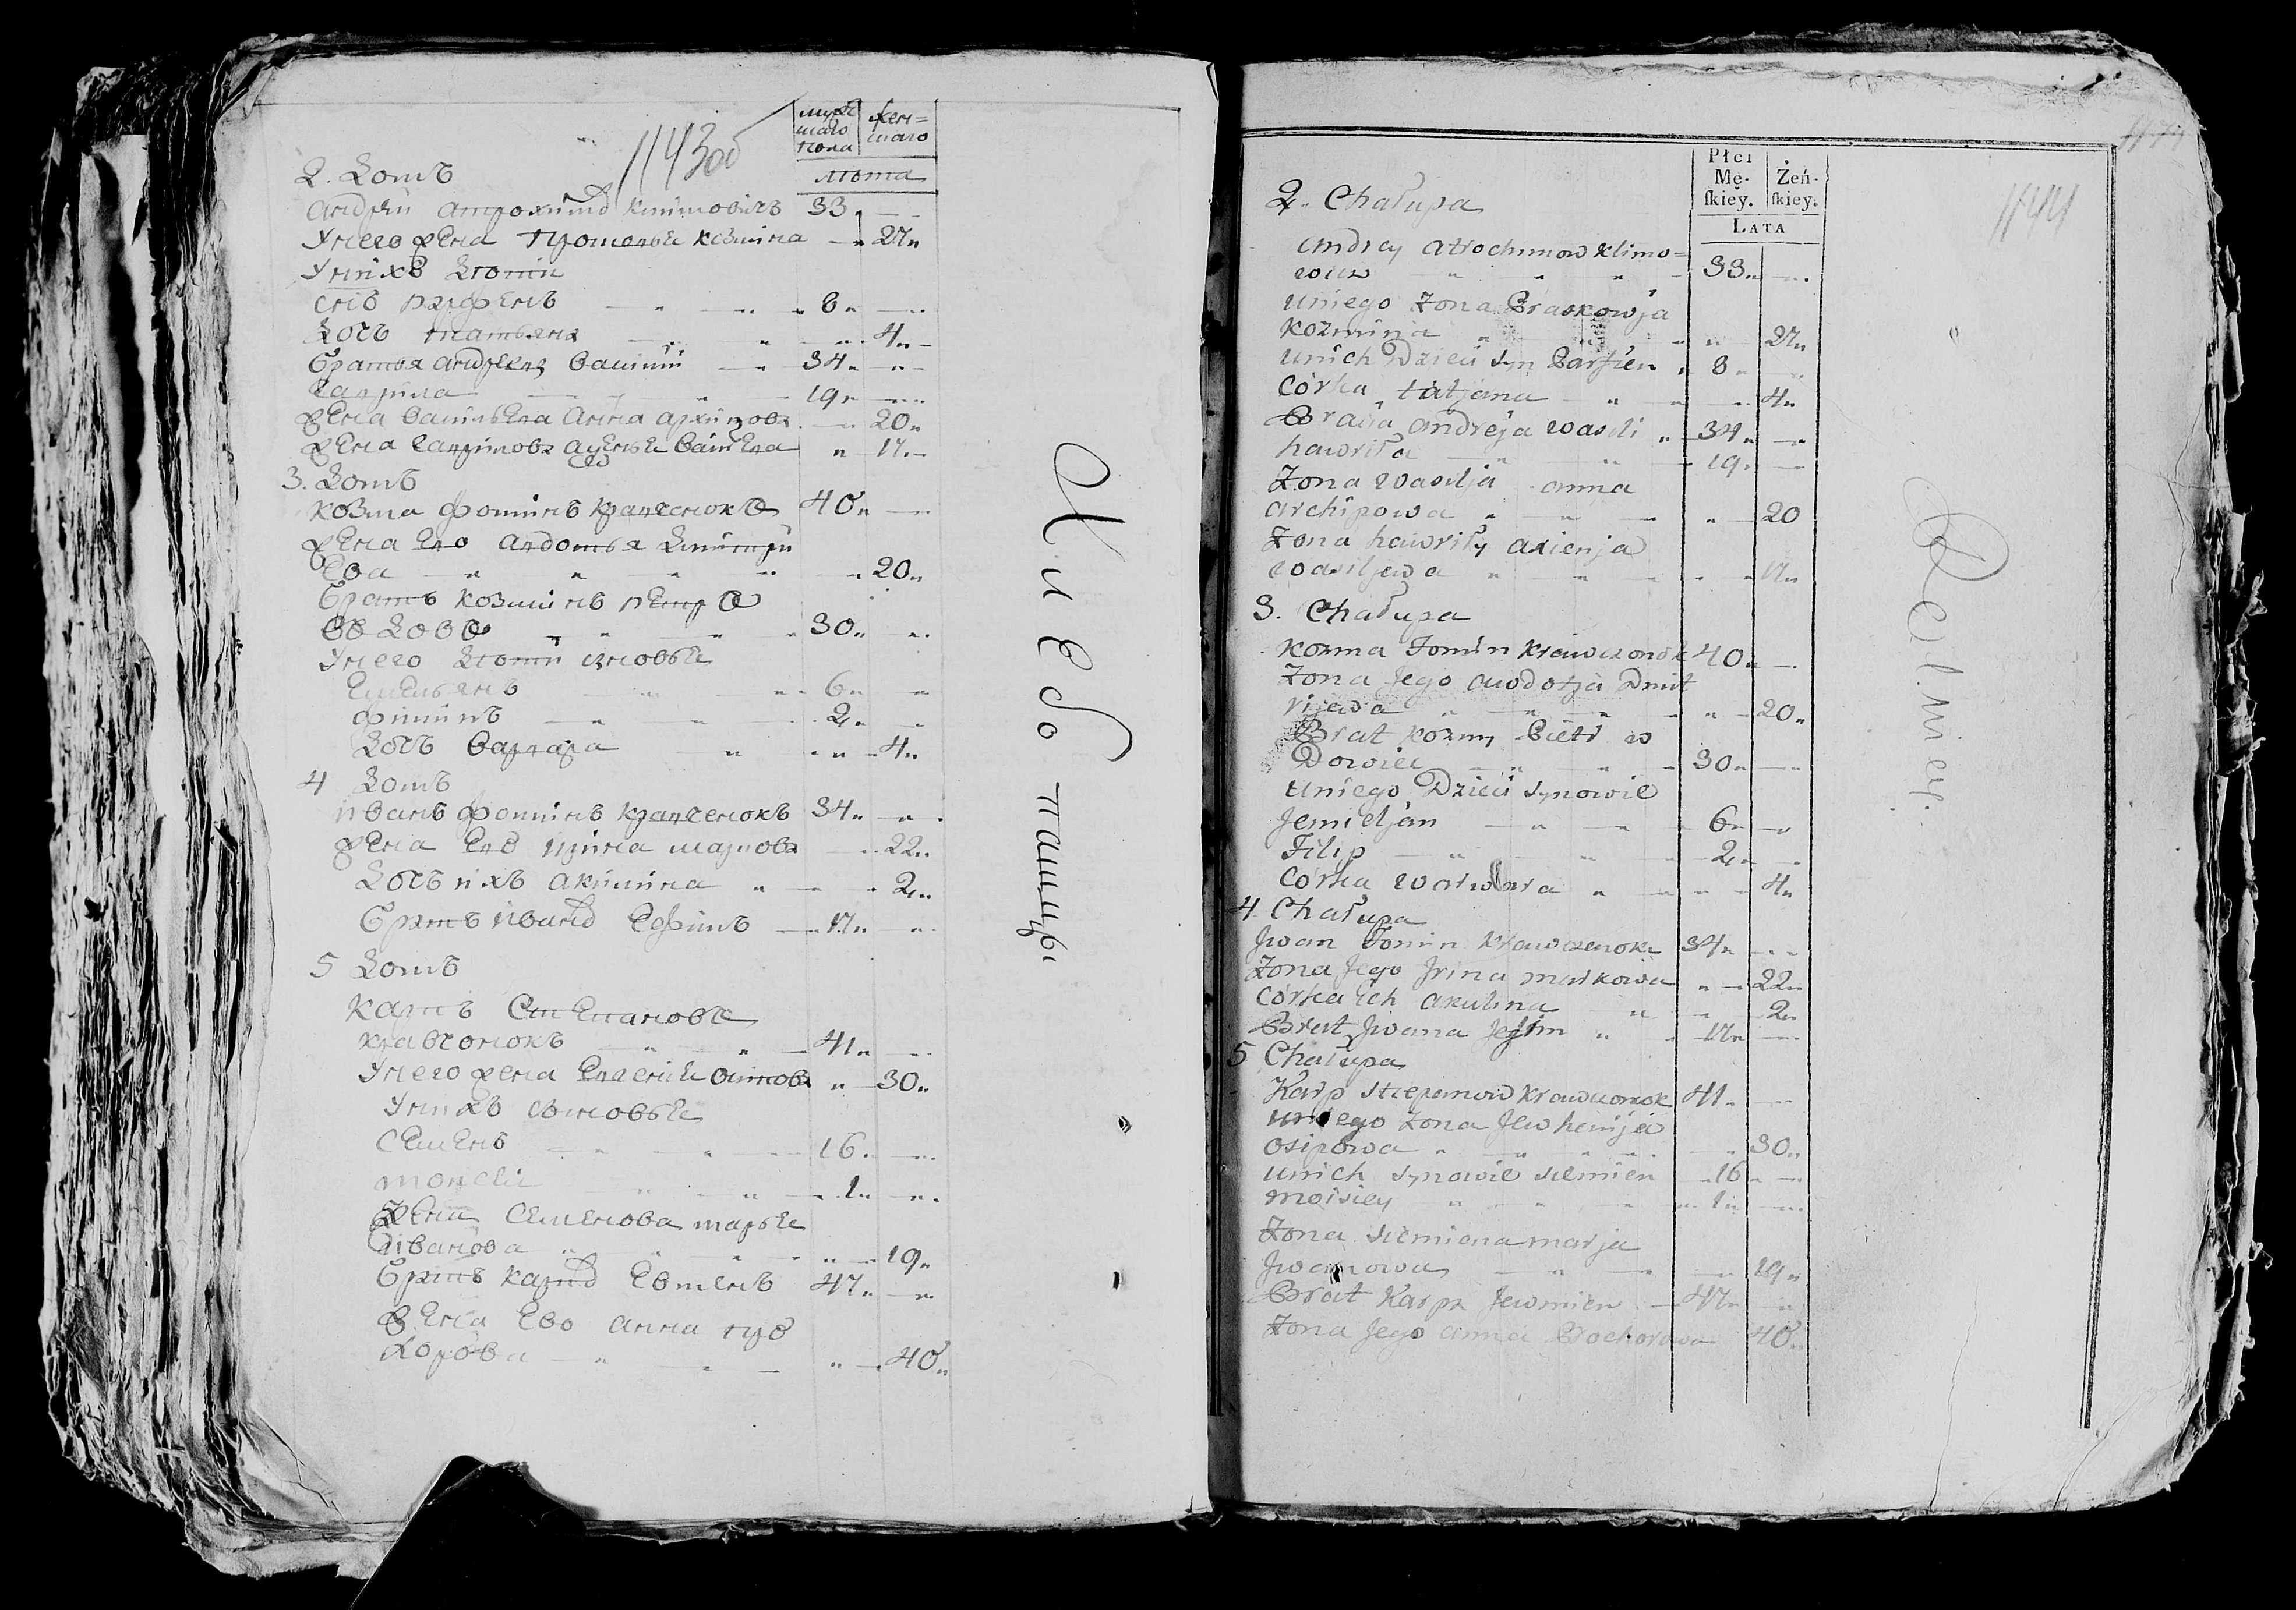 1143об
мужескаго пола
женскаго
лѣта
2. Домъ
Андрей Атрохимовъ Климовичъ 33
У него жена Просковья Козмина 27
У нихъ дѣти
сынъ Парфенъ 8
дочь Татьяна 4
братья Андрея Василий 34
Гаврила 19
жена Васильева Анна Архипова 20
жена Гаврилова Аксенья Васильева 17
3. Домъ
Козма Фоминъ Кравченокъ 40
жена Его Авдотья Дмитри
ева 20
братъ Козминъ Петръ
вдовъ 30
У него дѣти сыновья
Емельянъ 6
Филипъ 2
дочь Варвара 4
4 Домъ
Иванъ Фоминъ Кравченокъ 34
жена Его Ирина Маркова 22
дочь ихъ Акулина 2
братъ Ивана Ефимъ 17
5 Домъ
Карпъ Степановъ
Кравчонокъ 41
У него жена Евгенья Осипова 30
У нихъ сыновья
Семенъ 16
Моисей 1
жена Семенова Марья
Иванова 19
братъ Карпа Евменъ 47
жена Ево Анна Про
хорова 40
Хлебопашцы
1144
Płci
Mę-
ſkiey.
Żeń-
ſkiey.
LATA
2. Chałupa
Andrey Atrochimow Klimo=
wicz 33
u niego Żona Praskowja
Kozmina 27
u nich Dzieci Syn Parfien 8
Córka tatjana 4
Bracia Andreja Wasili 34
hawriła 19
Żona Wasilja anna
archipowa 20
Żona hawriły axienja
wasiljewa 17
3. Chałupa
Kozma Fomin Krawczonok 40
Żona Jego awdotja Dmit
rijewa 20
Brat Kozmy Pietr w
Dowiec 30
u niego Dzieci Synowie
Jemieljan 6
Filip 2
Córka warwara 4
4 Chałupa
Jwan Fomin Krawczenok 34
Żona Jego Jrina markowa 22
Córka ich akulina 2
Brat Jwana Jefim 17
5 Chałupa
Karp Stiepanow Krawczonok 41
u niego Żona Jewhenija
osipowa 30
u nich Synowie Siemien 16
moisiey 1
Żona Siemiona marja
Jwanowa 19
Brat Karpa Jewmien 47
Żona Jego anna Prochorowa 40
Rolnicy